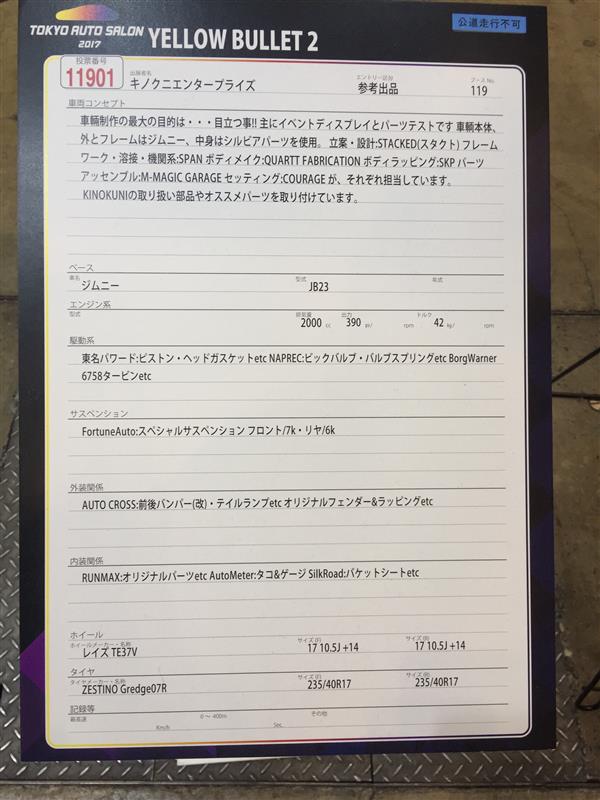 TOKYO AUTO SALON
2017
YELLOW BULLET 2
公道走行不可
投票番号
11901
出展者名
キノクニエンタープライズ
エントリー区分
参考出品
ブース No.
119
車両コンセプト
車輌制作の最大の目的は・・・目立つ事!! 主にイベントディスプレイとパーツテストです 車輌本体、
外とフレームはジムニー、中身はシルビアパーツを使用。 立案・設計:STACKED(スタクト) フレーム
ワーク・溶接・機関系:SPAN ボディメイク:QUARTT FABRICATION ボディラッピング:SKP パーツ
アッセンブル:M-MAGIC GARAGE セッティング:COURAGE が、それぞれ担当しています。
KINOKUNIの取り扱い部品やオススメパーツを取り付けています。
ベース
車名
ジムニー
型式
JB23
年式
エンジン系
型式
排気量
2000 cc
出力
390 ps/ rpm
トルク
42 kg/ rpm
駆動系
東名パワード:ピストン・ヘッドガスケットetc NAPREC:ビックバルブ・バルブスプリングetc BorgWarner
6758タービンetc
サスペンション
FortuneAuto:スペシャルサスペンション フロント/7k・リヤ/6k
外装関係
AUTO CROSS:前後バンパー(改)・テイルランプetc オリジナルフェンダー&ラッピングetc
内装関係
RUNMAX:オリジナルパーツetc AutoMeter:タコ&ゲージ SilkRoad:バケットシートetc
ホイール
ホイールメーカー・名称
レイズ TE37V
サイズ (F)
17 10.5J +14
サイズ (R)
17 10.5J +14
タイヤ
タイヤメーカー・名称
ZESTINO Gredge07R
サイズ (F)
235/40R17
サイズ (R)
235/40R17
記録等
最高速
Km/h
0 〜 400m
Sec.
その他